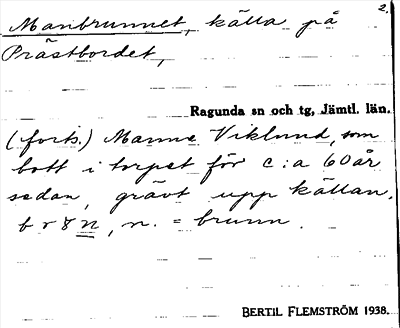 2.
Manbrunnet, källa på
Prästbordet,
Ragunda sn och tg, Jämtl. län.
(forts.) Manne Viklund, som
bott i torpet för c:a 60 år
sedan, grävt upp källan.
n, n. = brunn.
BERTIL FLEMSTRÖM 1938.